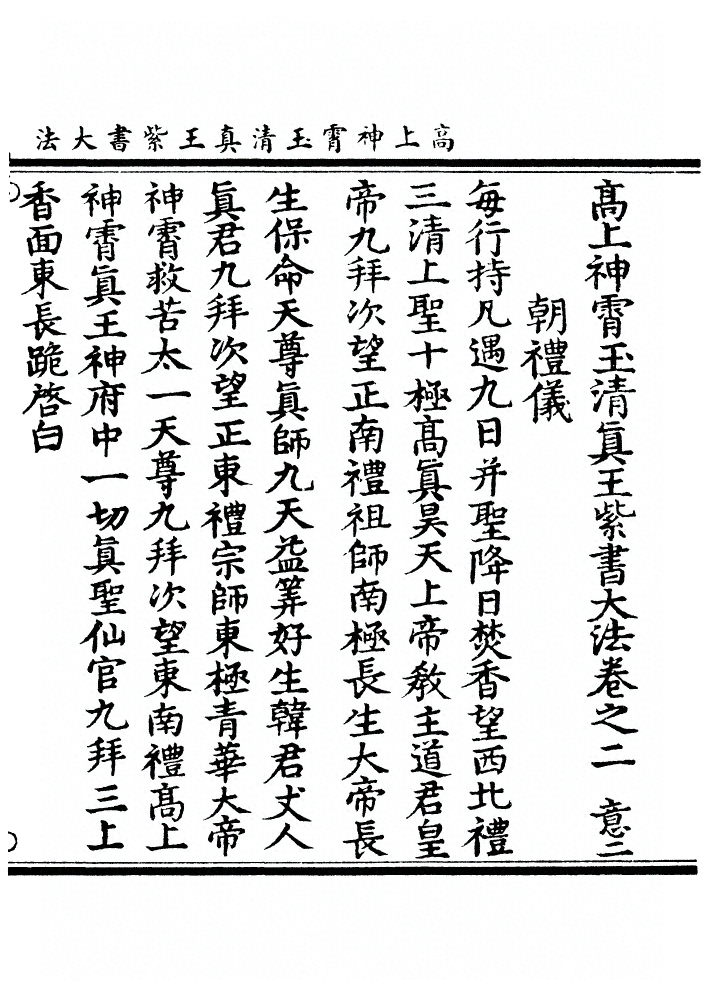 高上神霄玉清真王紫書大法
高上神霄玉清眞王紫書大法卷之二　意二
朝禮儀
每行持凡遇九日并聖降日焚香望西北禮
三清上聖十極高眞昊天上帝教主道君皇
帝九拜次望正南禮祖師南極長生大帝長
生保命天尊眞師九天益筭好生韓君丈人
眞君九拜次望正東禮宗師東極青華大帝
神霄救苦太一天尊九拜次望東南禮高上
神霄眞王神府中一切眞聖仙官九拜三上
香面東長跪啓白